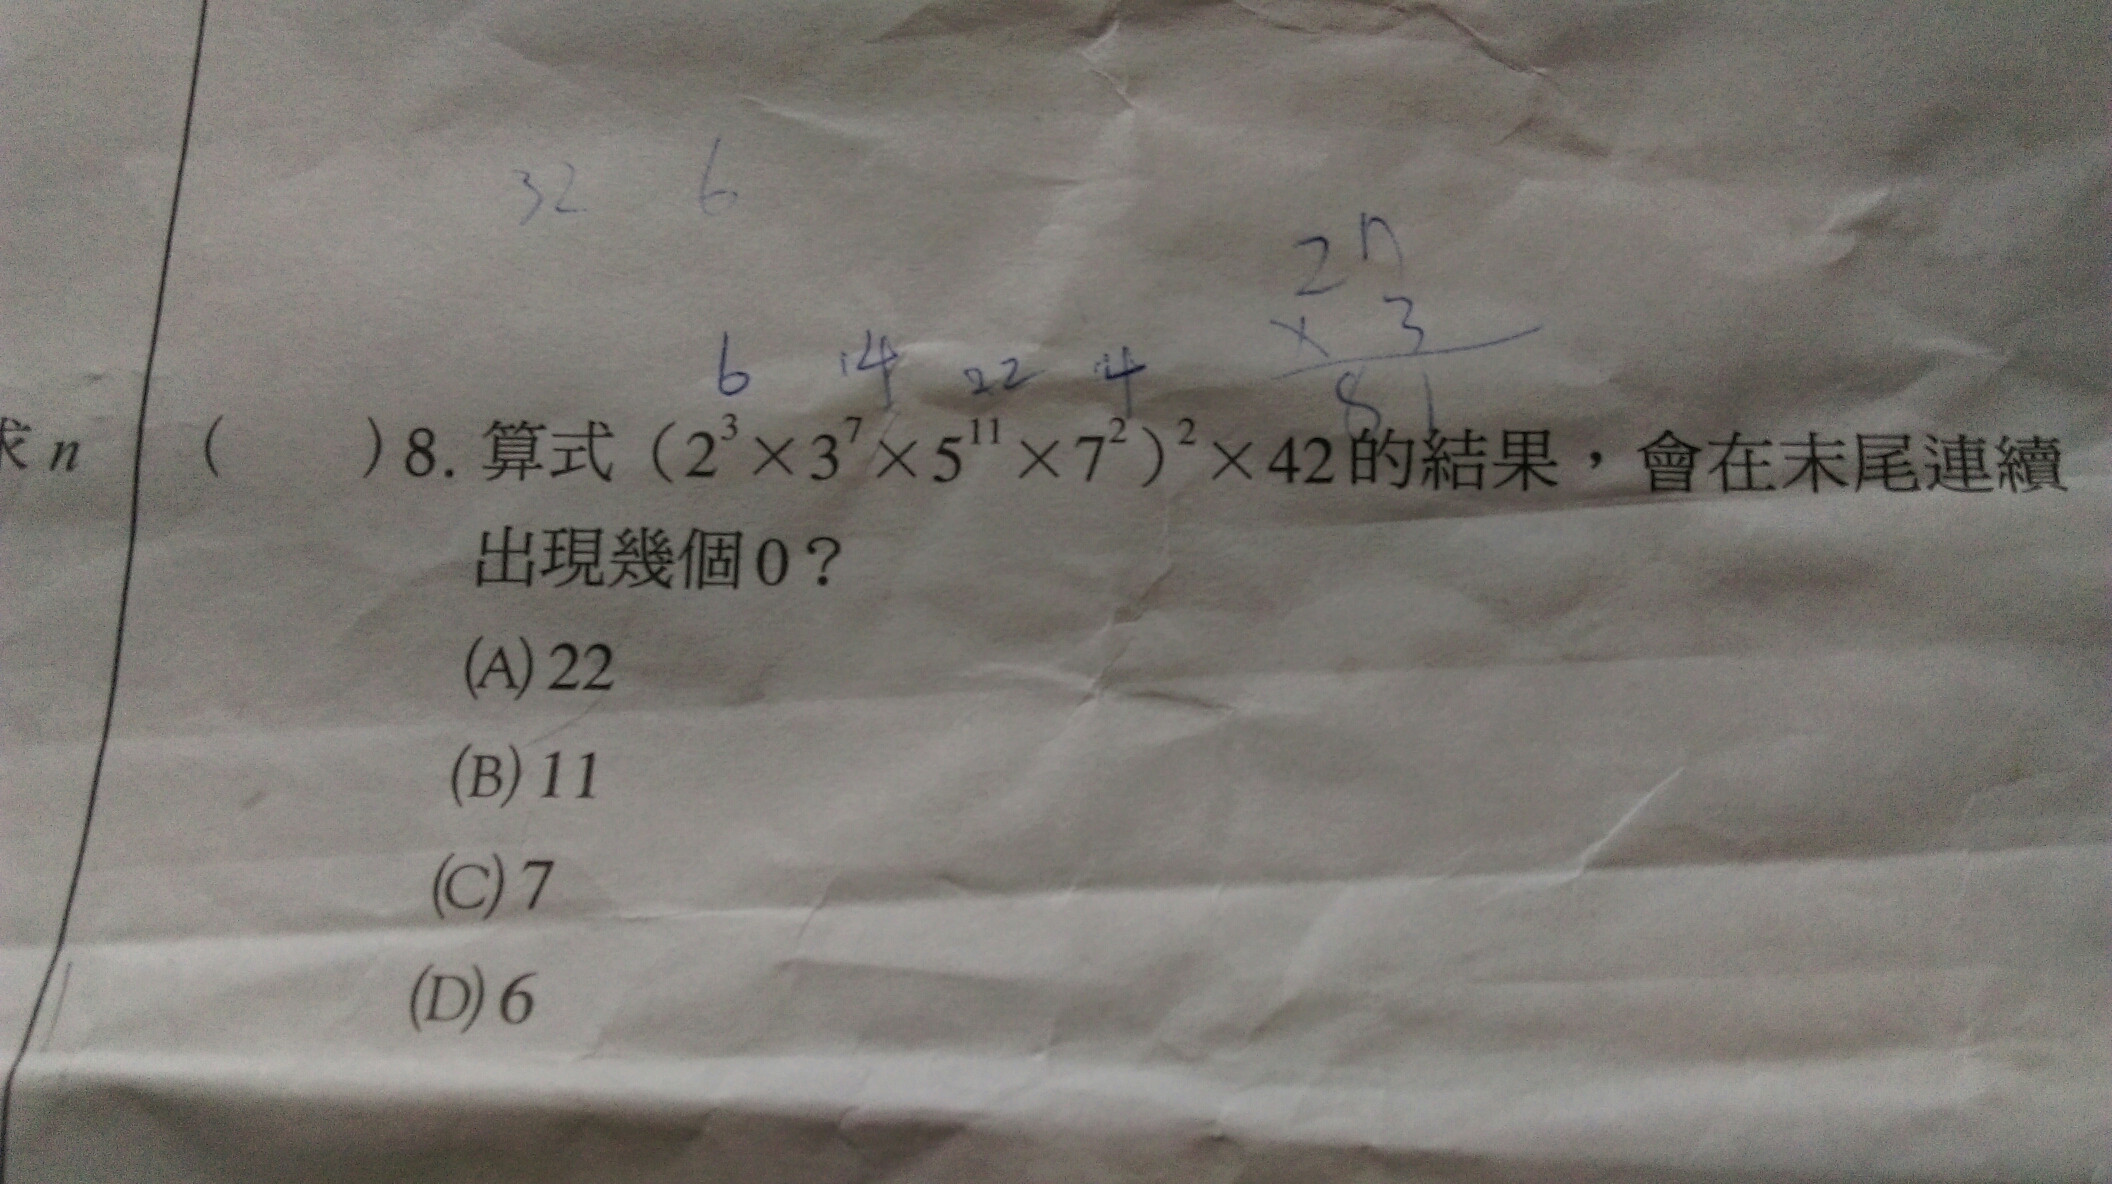 32 6
27
× 3
81
6 14 22 4
求 n
( ) 8. 算式（2³×3⁷×5¹¹×7²）²×42的結果，會在末尾連續
出現幾個0？
(A) 22
(B) 11
(C) 7
(D) 6